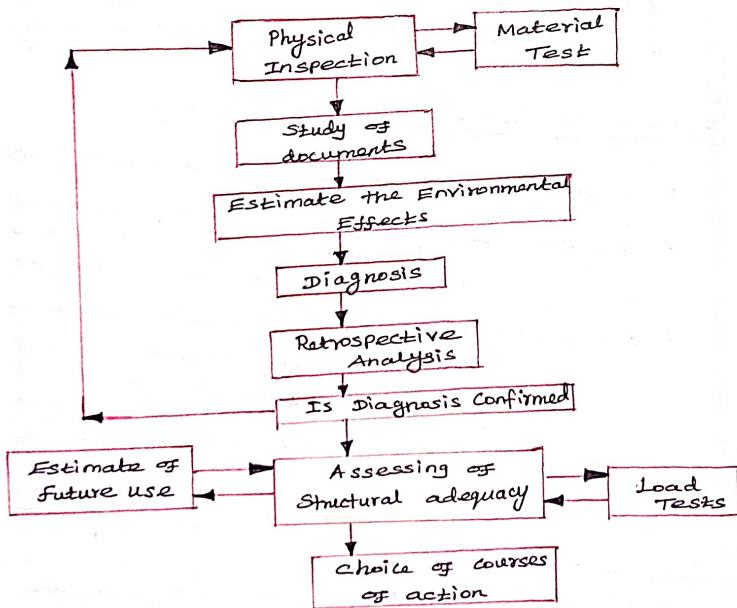 Physical
Inspection
Material
Test
Study of
documents
Estimate the Environmental
Effects
Diagnosis
Retrospective
Analysis
Is Diagnosis Confirmed
Estimate of
future use
Assessing of
Structural adequacy
Load
Tests
Choice of courses
of action